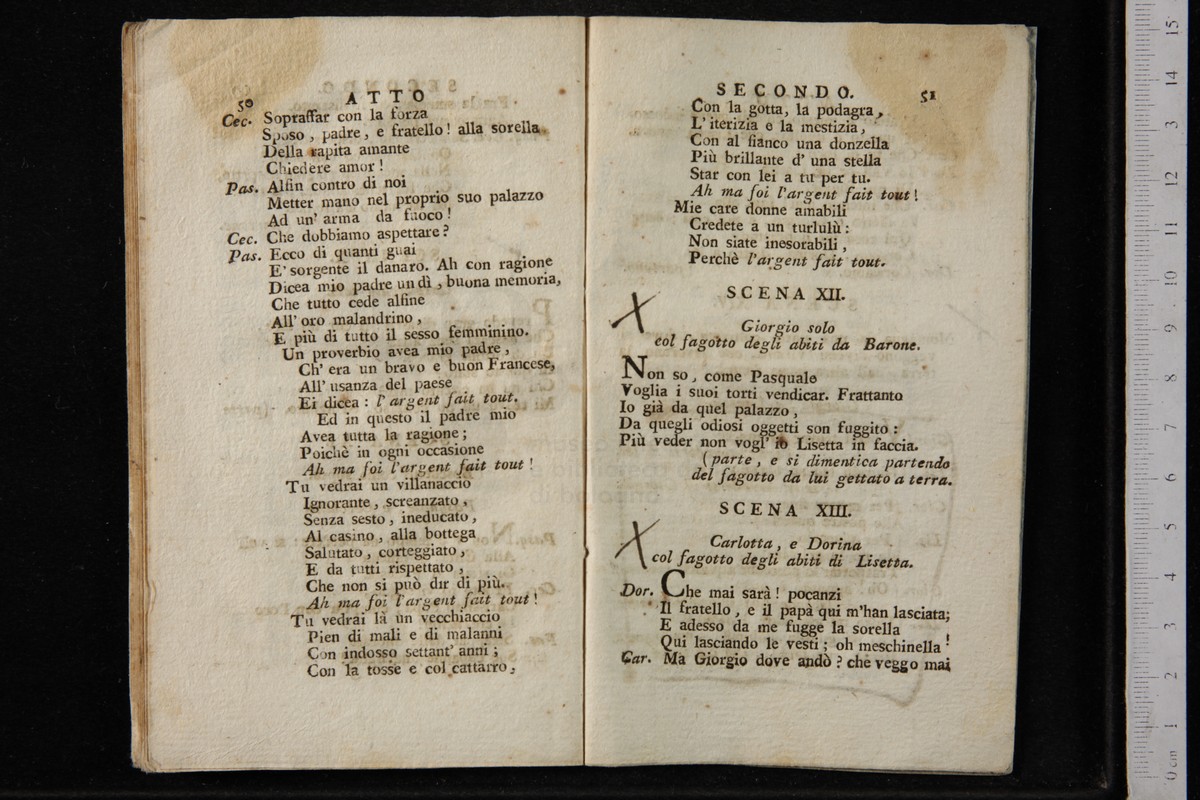 50 ATTO
Cec. Sopraffar con la forza
Sposo, padre, e fratello! alla sorella
Della rapita amante
Chiedere amor!
Pas. Alfin contro di noi
Metter mano nel proprio suo palazzo
Ad un' arma da fuoco!
Cec. Che dobbiamo aspettare?
Pas. Ecco di quanti guai
E' sorgente il danaro. Ah con ragione
Dicea mio padre un dì, buona memoria,
Che tutto cede alfine
All' oro malandrino,
E più di tutto il sesso femminino.
Un proverbio avea mio padre,
Ch' era un bravo e buon Francese,
All' usanza del paese
Ei dicea: l' argent fait tout.
Ed in questo il padre mio
Avea tutta la ragione;
Poichè in ogni occasione
Ah ma foi l'argent fait tout!
Tu vedrai un villanaccio
Ignorante, screanzato,
Senza sesto, ineducato,
Al casino, alla bottega
Salutato, corteggiato,
E da tutti rispettato,
Che non si può dir di più.
Ah ma foi l'argent fait tout!
Tu vedrai là un vecchiaccio
Pien di mali e di malanni
Con indosso settant' anni;
Con la tosse e col cattarro,
SECONDO. 51
Con la gotta, la podagra,
L' iterizia e la mestizia,
Con al fianco una donzella
Più brillante d' una stella
Star con lei a tu per tu.
Ah ma foi l'argent fait tout!
Mie care donne amabili
Credete a un turlulù:
Non siate inesorabili,
Perchè l'argent fait tout.
SCENA XII.
Giorgio solo
col fagotto degli abiti da Barone.
Non so, come Pasquale
Voglia i suoi torti vendicar. Frattanto
Io già da quel palazzo,
Da quegli odiosi oggetti son fuggito:
Più veder non vogl' io Lisetta in faccia.
(parte, e si dimentica partendo
del fagotto da lui gettato a terra.
SCENA XIII.
Carlotta, e Dorina
col fagotto degli abiti di Lisetta.
Dor. Che mai sarà! pocanzi
Il fratello, e il papà qui m'han lasciata;
E adesso da me fugge la sorella
Qui lasciando le vesti; oh meschinella!
Car. Ma Giorgio dove andò? che veggo mai
0 cm 1 2 3 4 5 6 7 8 9 10 11 12 13 14 15